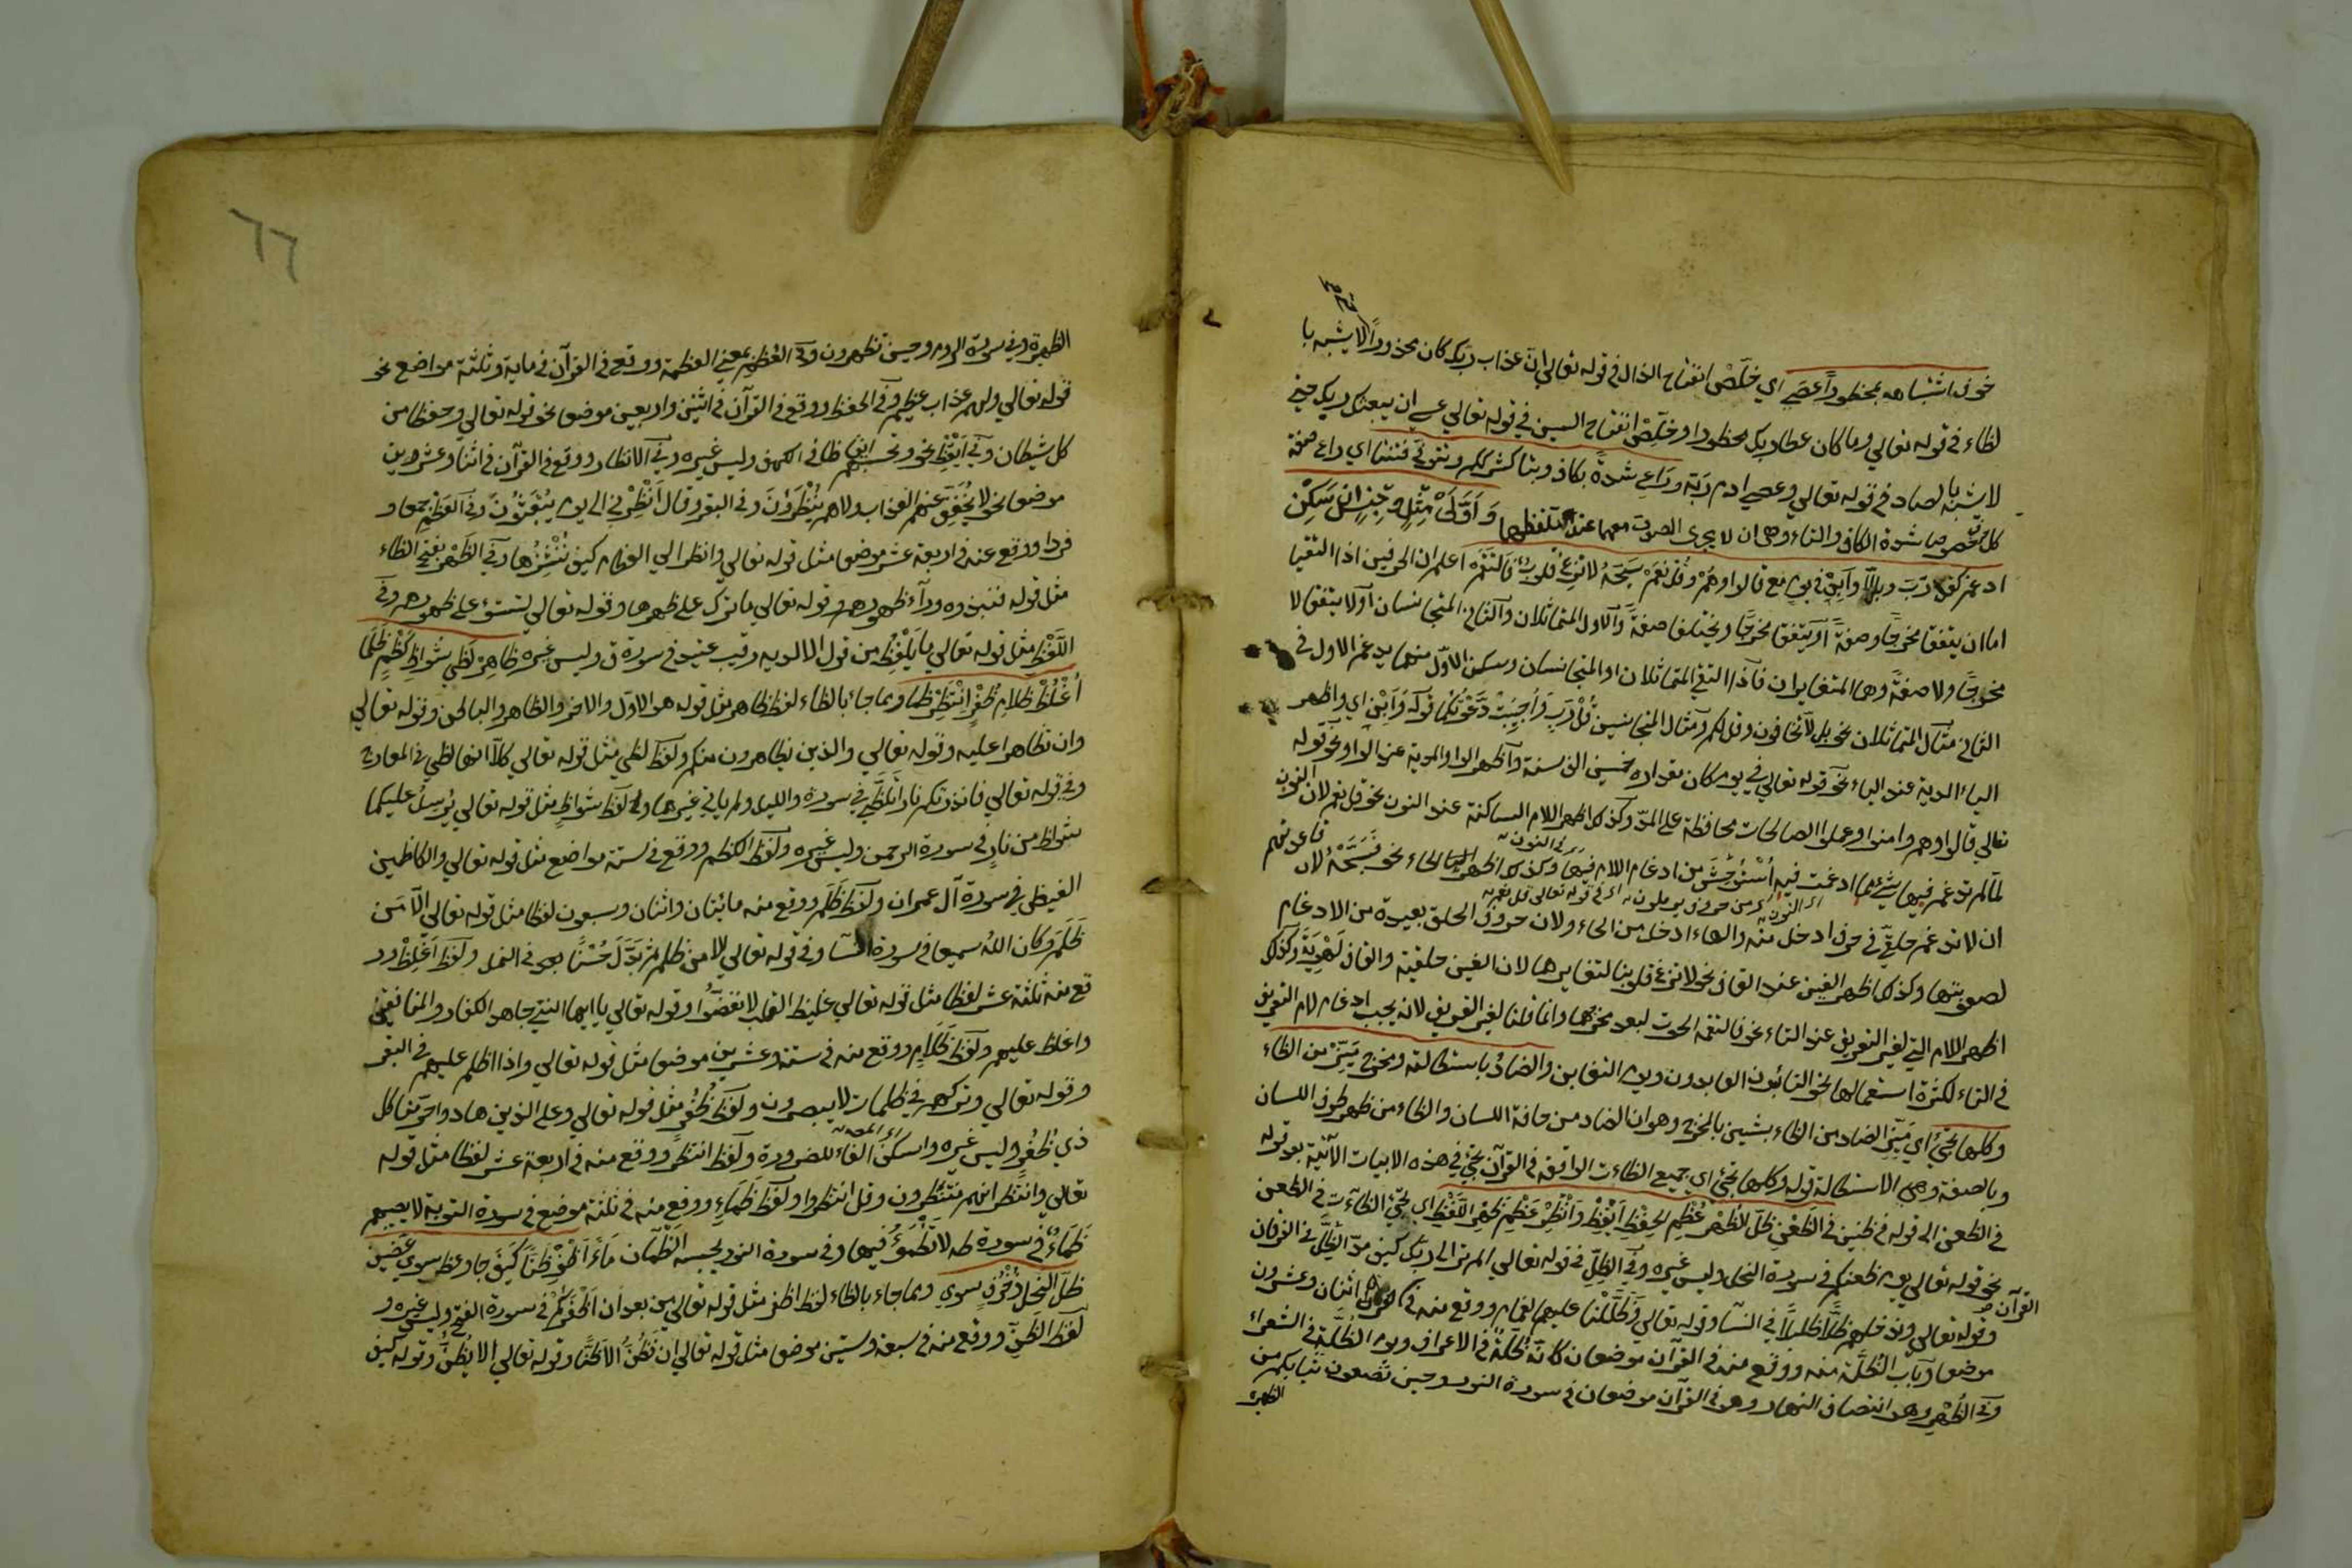 خوف اشتباهه بمحظوراً عصى اي خلّص انفتاح الذال في قوله تعالى ان عذاب ربك كان محذوراً لا يشبه با
لظاء في قوله تعالى وما كان عطاء ربك محظورا وخلّص انفتاح السين في قوله تعالى عسى ان يبعثك ربك حتى
لا يشبه بالصاد في قوله تعالى وعصى ادم ربه وراعِ شدةً بكاف وبتا كشرككم وتتوفى فتنتا اي راع صفة
كل خصوصا شدة الكاف والتاء وهى ان لا يجرى الصوت معهما عند تلفظهما وَ اَوَّلَىْ مِثْلٍ وجِنْسٍ اِنْ سَكَنْ
ادغم كقل ربّ وبل لا وَاَبِنْ في يوم مع قالوا وهُمْ وقُلْ نعَمْ سَبِّحْهُ لا تزغ قلوب فَالتَقَم اعلم ان الحرفين اذا التقيا
اما ان يتفقا مخرجًا وصفةً أو يتفقا مخرجًا ويختلفا صفةً والاول المتماثلان والثانى المتجانسان او لا يتفقا لا
مخرجًا ولا صفةً وهما المتغايران فاذا التقى المتماثلان او المتجانسان وسكن الاوّل منهما يدغم الاول في
الثانى مثال المتماثلان نحو بل لا تخافون وقل لكم ومثال المتجانسين قُلْ رَبِّ وَاُجِيبَتْ دَعْوَتُكُما قوله وَاَبِنْ اي واظهر
الياء المدية عند الياء نحو قوله تعالى في يوم كان مقداره خمسين الف سنة واظهر الواو المدية عند الواو نحو قوله
تعالى قالوا وهم وامنوا وعملوا الصالحات محافظة على المدّ وكذلك اظهر اللام الساكنة عند النون نحو قل نعم لان النون
لمّا لم تدغم فيها شيء مما ادغمت فيه اُسْتُوحِشَ من ادغام اللام فيها وكذلك اظهر الحاء نحو فَسَبِّحْهُ لان
ان لا تدغم حلقيّ في حرف ادخل منه والهاء ادخل من الحاء ولان حروف الحلق بعيدة من الادغام
لصعوبتها وكذلك اظهر الغين عند القاف نحو لا تزغ قلوبنا لتغايرهما لان الغين حلقية والقاف لَهْوِيّة وكذلك
اظهر اللام التي لغير التعريف عند التاء نحو فالتقمه الحوت لبعد مخرجهما وانما قلنا لغير التعريف لانه يجب ادغام لام التعريف
في التاء لكثرة استعمالها نحو التائبون العابدون ويوم التغابن والضادُ باستطالة ومخرج مَيِّزْ من الظاء
وكلها تجيُ اي مَيِّز الضاد من الظاء بشيئين بالمخرج وهو ان الضاد من حافة اللسان والظاء من ظهر طرف اللسان
وبالصفة وهى الاستطالة قوله وكلها تجئ اي جميع الظاءت الواقعة في القرآن تجئ في هذه الابيات الآتية بعد قوله
في الظعن الى قوله في ظنين في الظَعْنِ ظلّ الظُهْر عُظْمِ الحِفْظِ اَيْقِظْ وَاَنْظِرْ عَظْمِ ظَهْرِ اللَّفْظِ اي تجئ الظاآت في الظعن
نحو قوله تعالى يوم ظعنكم في سورة النحل وليس غيره وفي الظِلِّ في قوله تعالى الم تر الى ربك كيف مدّ الظِّلَّ في الفرقان
وقوله تعالى وندخلهم ظلًّا ظليلاً في النسآ وقوله تعالى وَظَلَّلْنا عليهم الغمام ووقع منه في القرآن اثنان وعشرون
موضعا وباب الظُلَّة منه ووقع منه في القرآن موضعان كانّه ظُلّة في الاعراف ويوم الظُلَّة في الشعراء
وفي الظُهْر وهو انتصاف النهار وهو في القرآن موضعان في سورة النور وحين تضعون ثيابكم من
الظهيرة
٦٦
الظهيرة وفي سورة الروم وحين تظهرون وفي العُظْمِ بمعنى العظمة ووقع في القرآن في ماية وثلثة مواضع نحو
قوله تعالى ولهم عذاب عظيم وفي الحفظ ووقع في القرآن في اثنين واربعين موضعا نحو قوله تعالى وحفظا من
كل شيطان وفي اَيْقِظْ نحو وتحسبهم ايقاظا في الكهف وليس غيره وفي الانظار ووقع في القرآن في اثنا وعشرين
موضعا نحو لا يُخَفَّف عنهم العذاب ولا هم يُنْظَرُونَ وفي البقرة وقال اَنْظِرْنى الى يوم يُبْعَثُونَ وفي العَظْمِ جمعا و
فردا ووقع عنه في اربعة عشر موضعا مثل قوله تعالى وانظر الى العظام كيف نُنْشِزُها وفي الظَهْر بفتح الظاء
مثل قوله فنبذوه ورآء ظهورهم وقوله تعالى ما ترك على ظهرها وقوله تعالى لتستوا على ظهوره وفي
اللَّفْظِ مثل قوله تعالى ما يَلْفِظُ من قول الا لديه رقيب عتيد في سورة ق وليس غيره ظاهِرْ لَظى شُواظِ كَظْمٍ ظَلَمَا
اُغْلُظْ ظلامِ ظُفْرٍ اِنْتَظِرْ ظما ومما جاء بالظاء لفظ ظاهر مثل قوله هو الاوّل والاخر والظاهر والباطن وقوله تعالى
وان تظاهرا عليه وقوله تعالى والذين يظاهرون منكم ولفظ لظى مثل قوله تعالى كلّا انها لظى في المعارج
وفي قوله تعالى فانذرتكم نارا تَلَظّى في سورة والليل ولم ياتي غيرهما وفي لفظ شواظٍ مثل قوله تعالى يُرسَلُ عليكما
شواظ من نارٍ في سورة الرحمن وليس غيره ولفظ الكظم ووقع في ستة مواضع مثل قوله تعالى والكاظمين
الغيظ في سورة آل عمران ولفظ ظَلَمَ ووقع منه مائتان واثنان وسبعون لفظا مثل قوله تعالى الّا مَن
ظَلَمَ وكان اللهُ سميعا في سورة النسآ وفي قوله تعالى الا من ظلم ثم بَدَّل حُسْنًا بعد في النمل ولفظ اُغْلُظْ وو
قع منه ثلثة عشر لفظا مثل قوله تعالى غليظ القلب لا نفضّوا وقوله تعالى يا ايها النبي جاهد الكفار والمنافقين
واغلظ عليهم ولفظ ظَلامِ ووقع منه في ستة وعشرين موضعا مثل قوله تعالى واذا اظلم عليهم في البقر
وقوله تعالى وتركهم في ظلمات لا يبصرون ولفظ ظُفُرٍ مثل قوله تعالى وعلى الذين هادوا حرّمنا كل
ذي ظُفُرٍ وليس غيره واسكن الفاء للضرورة ولفظ انتظر ووقع منه في اربعة عشر لفظا مثل قوله
تعالى وانتظر انهم منتظرون وقل انتظروا ولفظ ظَماءِ ووقع منه في ثلثة موضع في سورة التوبة لا يصيبهم
ظَماءٌ في سورة طه لا تَظْمَؤُ فيها وفي سورة النور يحسبه الظمآن مَآءً اَظْفَرَ ظنًّا كَيْفَ جا وعظ سوى عِضِين
ظلّ النحل زُخْرُفٍ سوى ومما جاء بالظاء لفظ اظفر مثل قوله تعالى من بعد ان اَظْفَرَكُمْ في سورة الفتح وليس غيره و
لفظ الظن ووقع منه في سبعة وستين موضعا مثل قوله تعالى ان نَظُنُّ الا ظَنًّا وقوله تعالى الا يَظُنُّ وقوله كيف